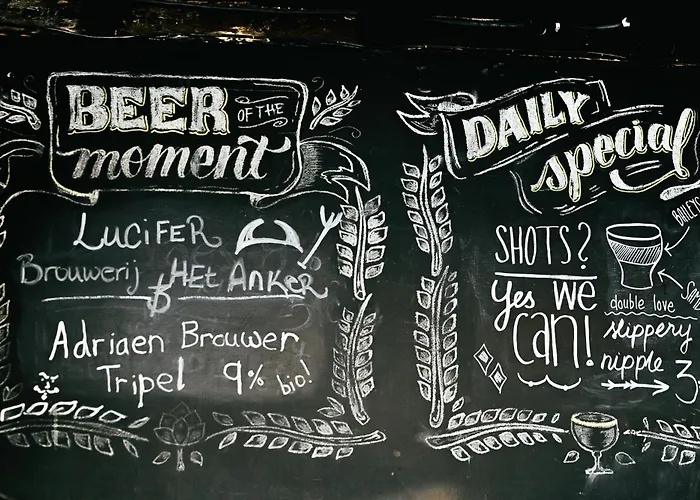 BEER OF THE
moment
LUCiFER
Brouwerij HEt ANKER
Adriaen Brouwer
Tripel 9% bio!
DAILY
special
SHOTS?
Yes WE
can!
BAILEYS
double love
slippery
nipple 3